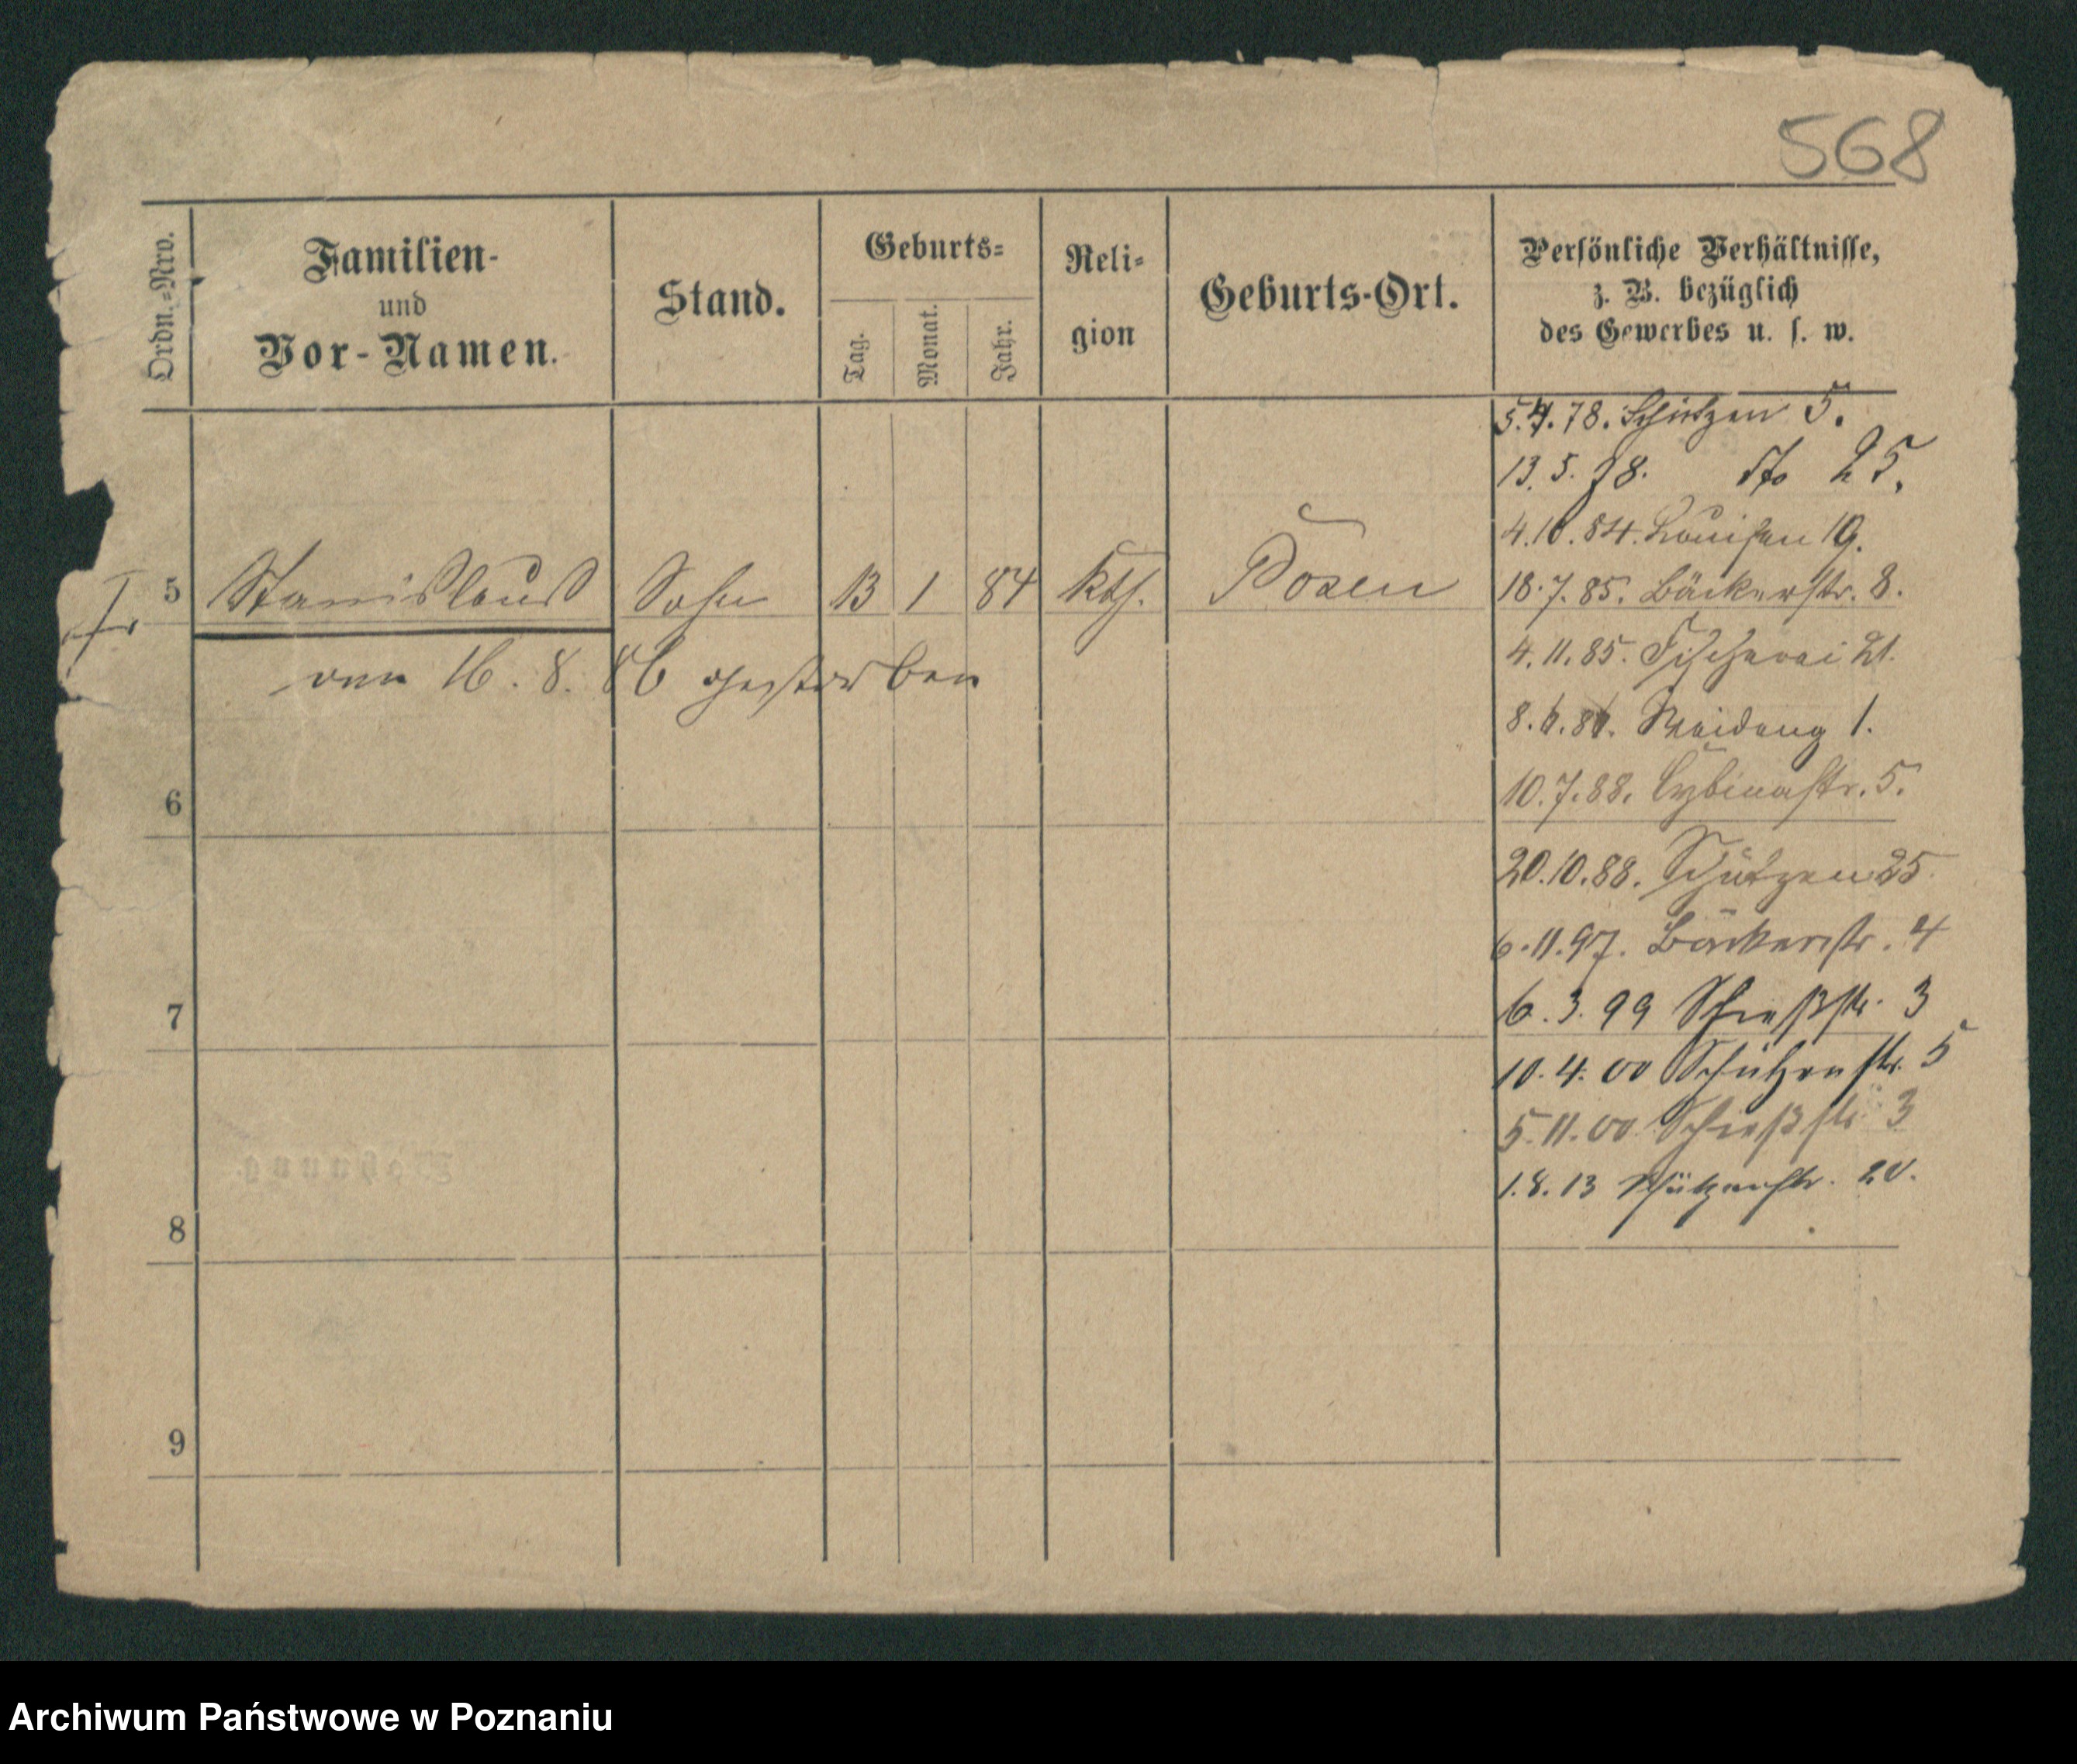 568
Ordn.-Nro.
Familien-
und
Vor-Namen.
Stand.
Geburts-
Tag.
Monat.
Jahr.
Reli-
gion
Geburts-Ort.
Persönliche Verhältnisse,
z. B. bezüglich
des Gewerbes u. s. w.
5.4.78. Schützen 5.
13.5.78. dto 25.
4.10.84. Louisen 19.
5 Stanislaus Sohn 13 1 84 kth. Posen
18.7.85. Bäckerstr. 8.
am 16.8.86 gestorben
4.11.85. Fischerei 21.
8. Neideng 1.
6
10.7.88. Cybinastr. 5.
20.10.88. Schützen 25
6.11.97. Bäckerstr. 4
7
6.3.99 Schießstr. 3
10.4.00 Schützenstr. 5
5.11.00 Schießstr. 3
1.8.13 Schützenstr. 20.
Wohnung
8
9
Archiwum Państwowe w Poznaniu